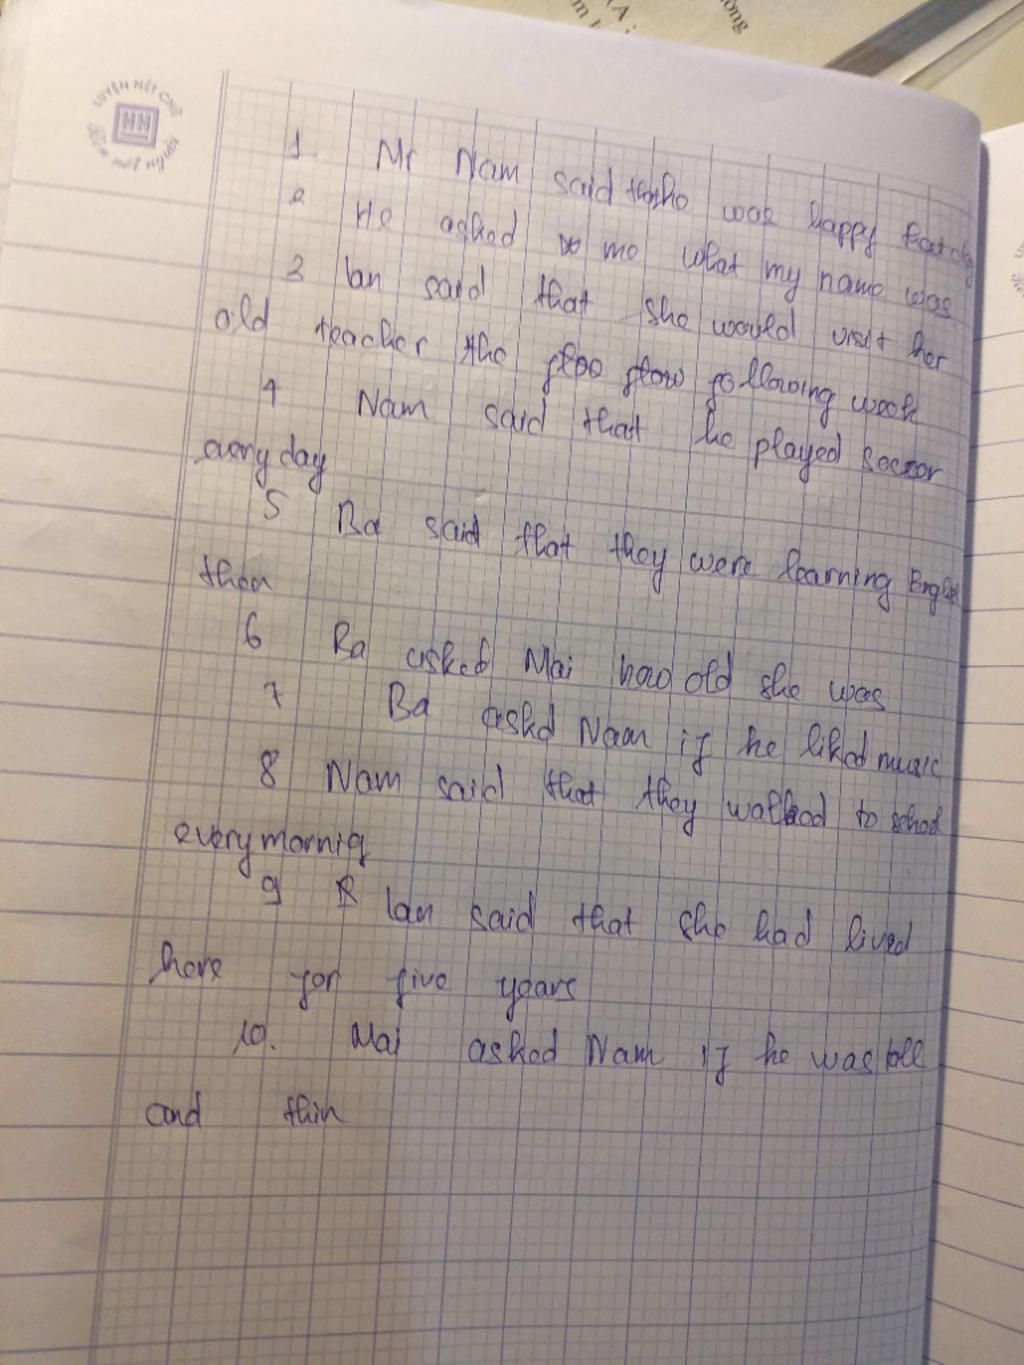 LUYỆN NÉT CHỮ
HN
1 Mr Nam said that he was happy that day
2 He asked me what my name was
3 lan said that she would visit her
old teacher the following week
4 Nam said that he played soccer
every day
5 Ba said that they were learning English
then
6 Ba asked Mai how old she was
7 Ba askd Nam if he liked music
8 Nam said that they walked to school
every mornig
9 lan said that she had lived
here for five years
10. Mai asked Nam if he was tall
and thin